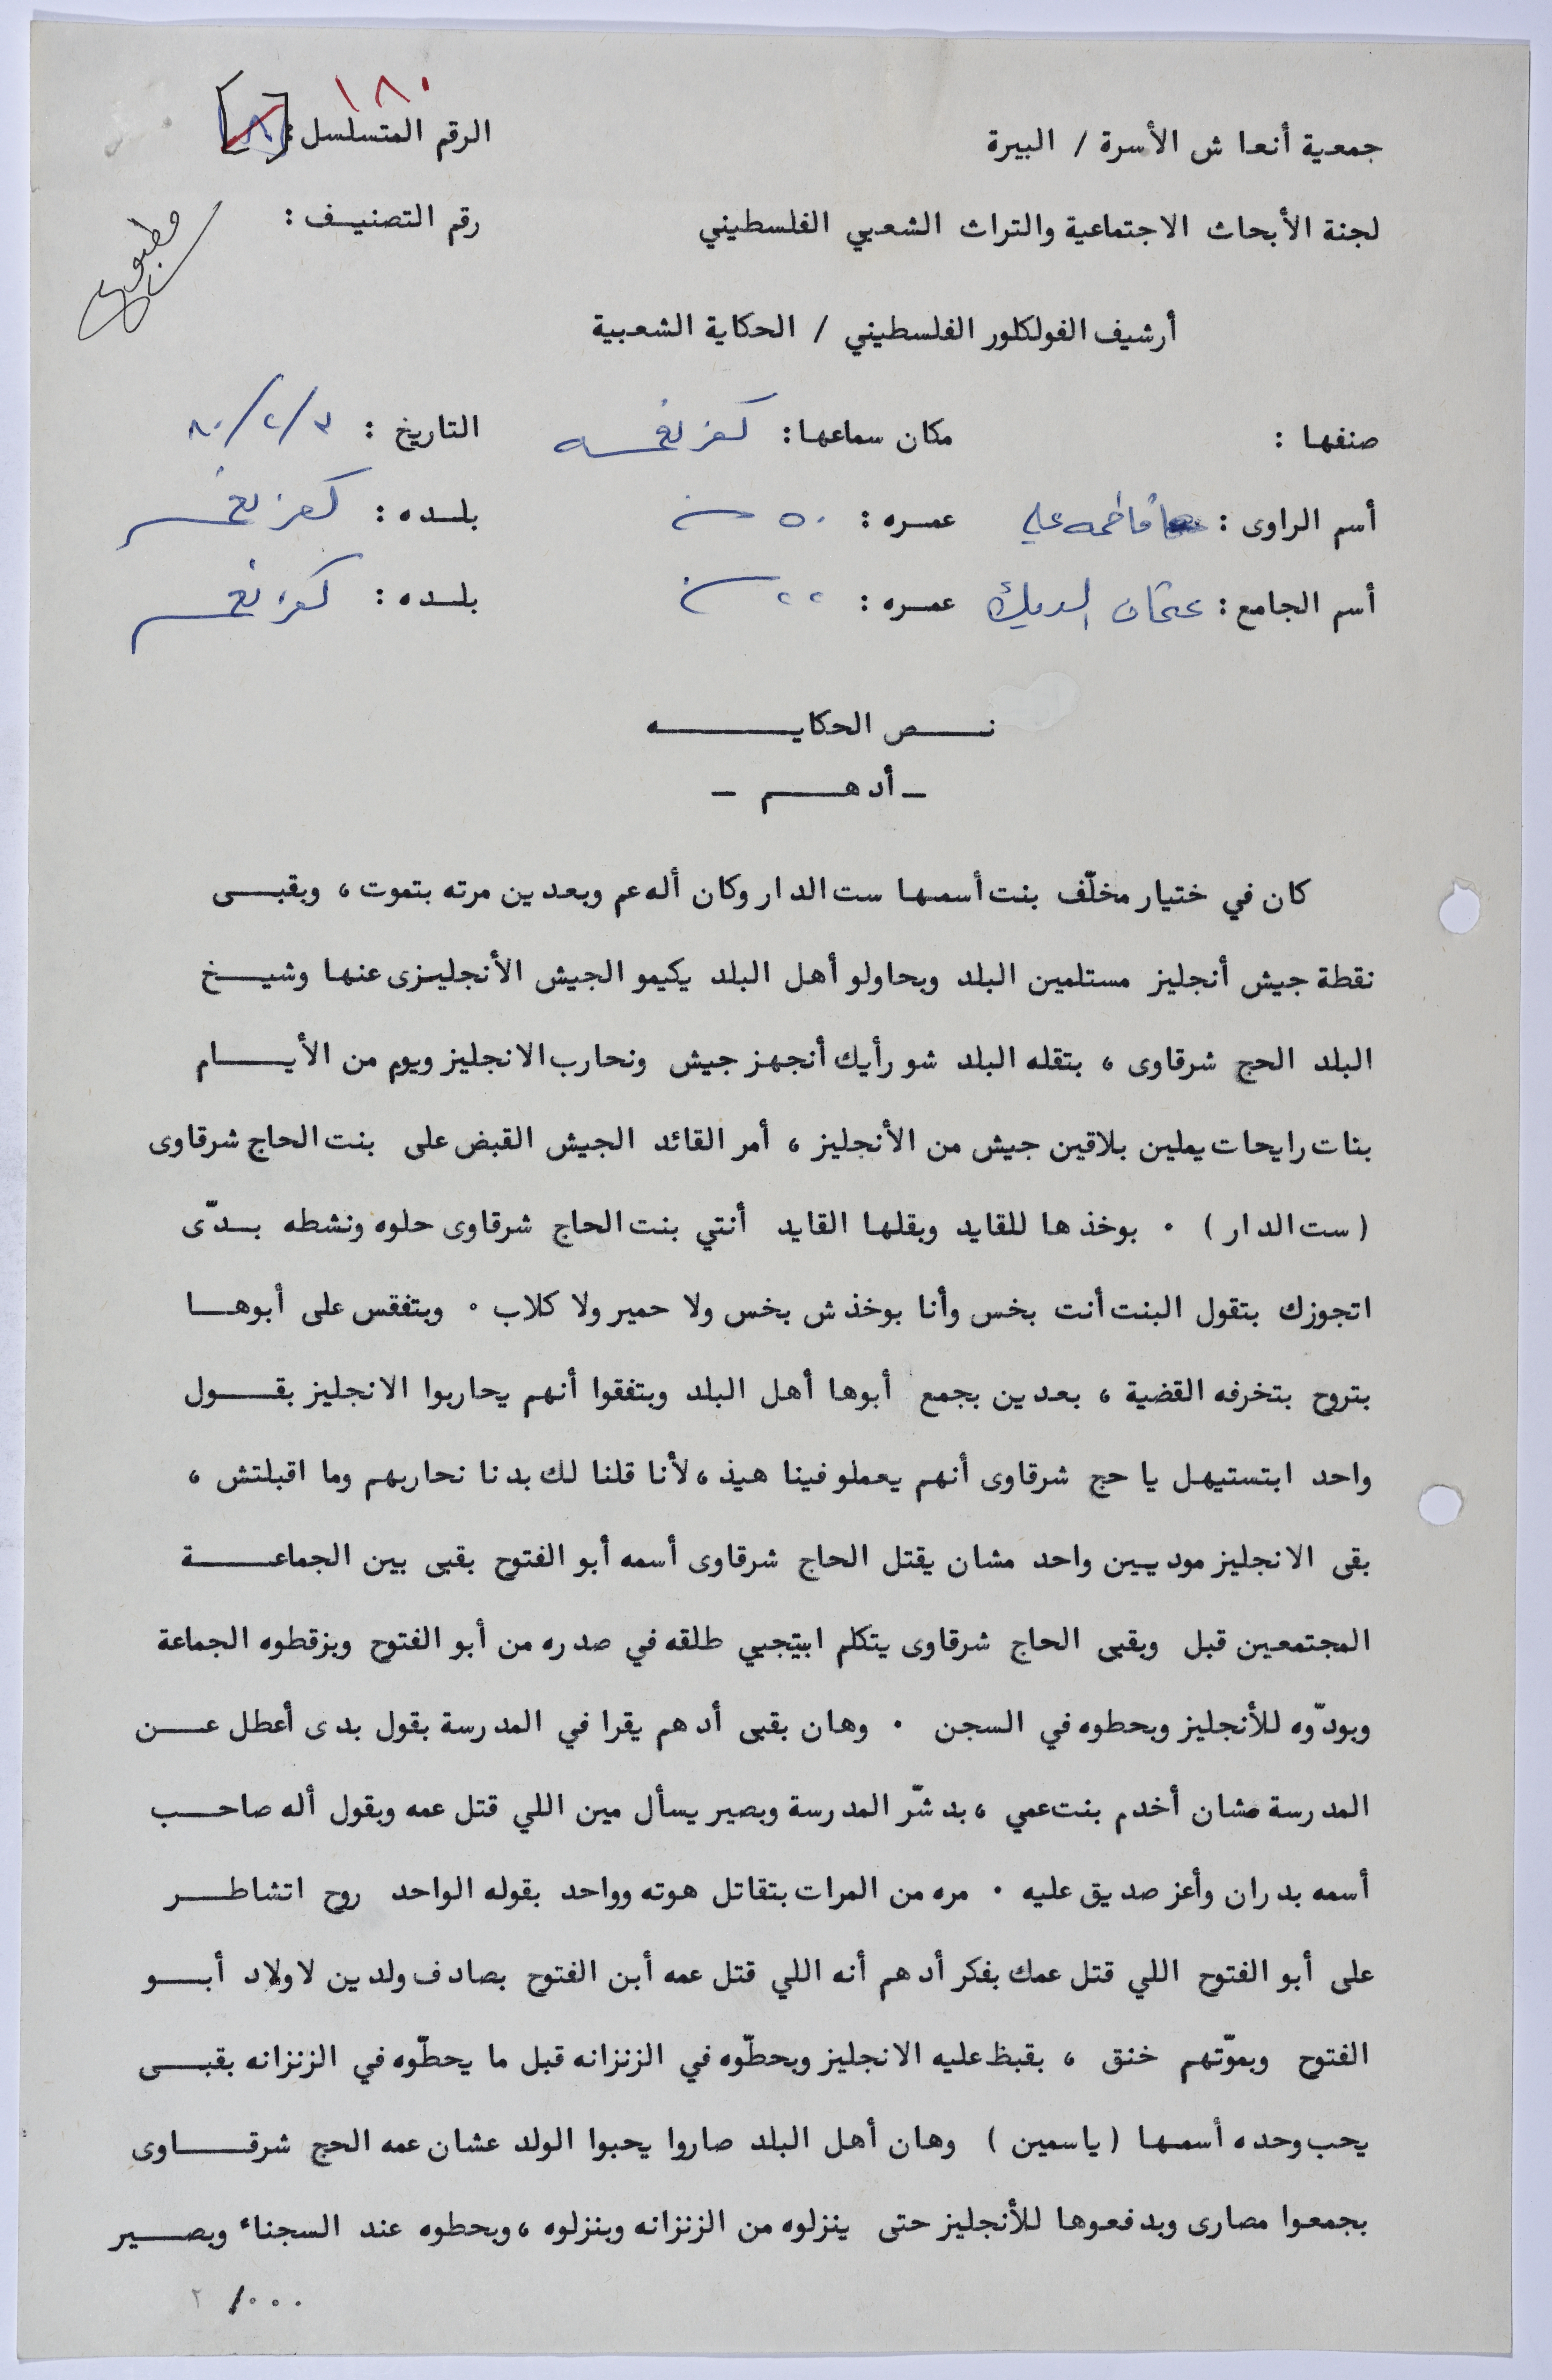 ١٨٠
جمعية أنعاش الأسرة / البيرة الرقم المتسلسل : [ ]
لجنة الأبحاث الاجتماعية والتراث الشعبي الفلسطيني رقم التصنيـف :
مطبوع
أرشيف الفولكلور الفلسطيني / الحكاية الشعبية
صنفها : مكان سماعها : كفر نعمه التاريخ : ٣/٢/٨٠
أسم الراوى : فاطمه علي عمـره : ٥٠ سنة بلـده : كفر نعمه
أسم الجامع : عثمان الديك عمـره : ٢٢ سنة بلـده : كفر نعمه
نــص الحكايـــــه
ـ أدهــــم ـ
كان في ختيار مخلّف بنت أسمها ست الدار وكان أله عم وبعدين مرته بتموت ، وبقبـــى
نقطة جيش أنجليز مستلمين البلد وبحاولو أهل البلد يكيمو الجيش الأنجليـزى عنها وشيـــخ
البلد الحج شرقاوى ، بتقله البلد شو رأيك أنجهز جيش ونحارب الانجليز ويوم من الأيـــــام
بنات رايحات يملين بلاقين جيش من الأنجليز ، أمر القائد الجيش القبض على بنت الحاج شرقاوى
( ست الدار ) ٠ بوخذها للقايد وبقلها القايد أنتي بنت الحاج شرقاوى حلوه ونشطه بــدّى
اتجوزك بتقول البنت أنت بخس وأنا بوخذش بخس ولا حمير ولا كلاب ٠ وبتفقس على أبوهــا
بتروح بتخرفه القضية ، بعدين بجمع أبوها أهل البلد وبتفقوا أنهم يحاربوا الانجليز بقـــول
واحد ابتستيهل يا حج شرقاوى أنهم يعملو فينا هيذ ، لأنا قلنا لك بدنا نحاربهم وما اقبلتش ،
بقى الانجليز موديـين واحد مشان يقتل الحاج شرقاوى أسمه أبو الفتوح بقبى بين الجماعــــــة
المجتمعين قبل وبقبى الحاج شرقاوى يتكلم ابتجيي طلقه في صدره من أبو الفتوح وبزقطوه الجماعة
وبودّوه للأنجليز وبحطوه في السجن ٠ وهان بقبى أدهم يقرا في المدرسة بقول بدى أعطل عـــن
المدرسة مشان أخدم بنت عمي ، بدشّر المدرسة وبصير يسأل مين اللي قتل عمه وبقول أله صاحــب
أسمه بدران وأعز صديق عليه ٠ مره من المرات بتقاتل هوته وواحد بقوله الواحد روح اتشاطـــر
على أبو الفتوح اللي قتل عمك بفكر أدهم أنه اللي قتل عمه أبن الفتوح بصادف ولدين لاولاد أبـــو
الفتوح وبموّتهم خنق ، بقبظ عليه الانجليز وبحطّوه في الزنزانه قبل ما يحطّوه في الزنزانه بقبـــى
يحب وحده أسمها ( ياسمين ) وهان أهل البلد صاروا يحبوا الولد عشان عمه الحج شرقــــاوى
بجمعوا مصارى وبدفعوها للأنجليز حتى ينزلوه من الزنزانه وبنزلوه ، وبحطوه عند السجناء وبصـــير
٠٠٠/ ٢